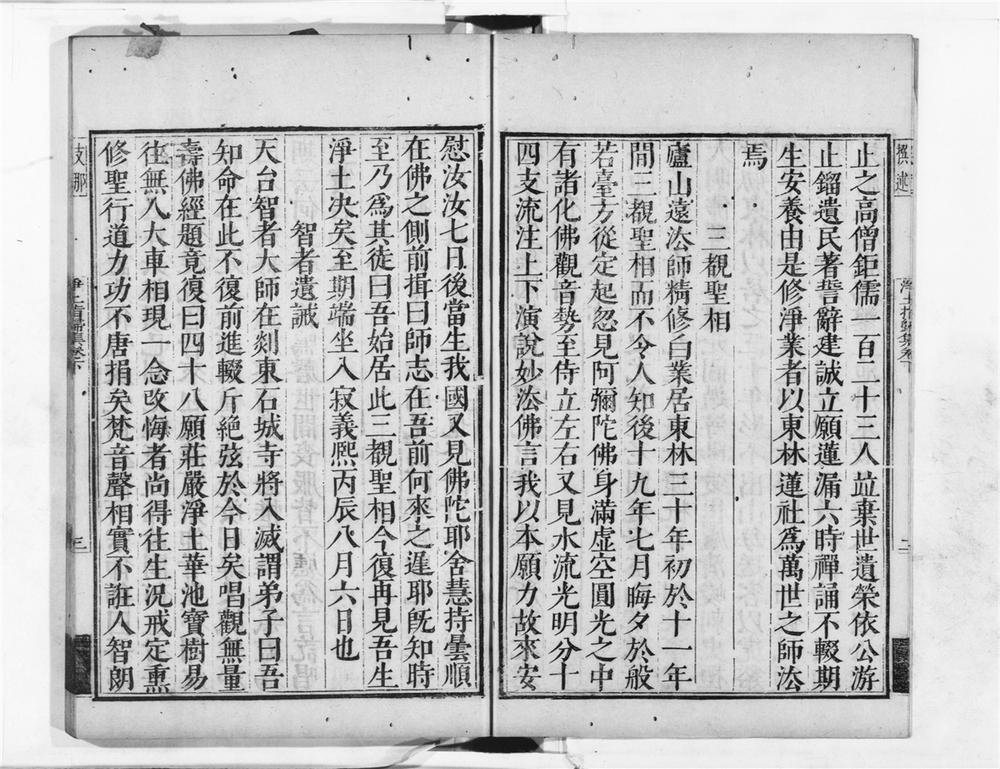 止之高僧鉅儒一百二十三人竝棄世遺榮依公游
止鎦遺民著誓辭建誠立願蓮漏六時禪誦不輟期
生安養由是修淨業者以東林蓮社爲萬世之師法
焉
三覩聖相
廬山遠法師精修白業居東林三十年初於十一年
間三覩聖相而不令人知後十九年七月晦夕於般
若臺方從定起忽見阿彌陀佛身滿虛空圓光之中
有諸化佛觀音勢至侍立左右又見水流光明分十
四支流注上下演說妙法佛言我以本願力故來安
慰汝汝七日後當生我國又見佛陀耶舍慧持曇順
在佛之側前揖曰師志在吾前何來之遲耶旣知時
至乃爲其徒曰吾始居此三覩聖相今復再見吾生
淨土決矣至期端坐入寂義熙丙辰八月六日也
智者遺誡
天台智者大師在剡東石城寺將入滅謂弟子曰吾
知命在此不復前進輟斤絕弦於今日矣唱觀無量
壽佛經題竟復曰四十八願莊嚴淨土華池寶樹易
徃無人火車相現一念改悔者尚得往生況戒定熏
修聖行道力功不唐捐矣梵音聲相實不誑人智朗
淨土指歸集卷下
三